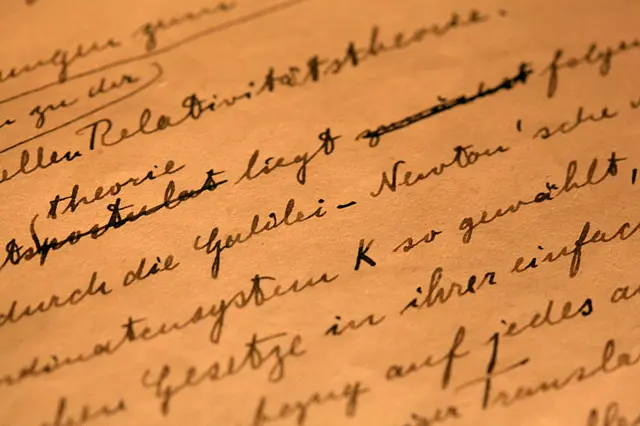 ungen zum
n zu der
ellen Relativitätstheorie.
theorie
tspostulat liegt zunächst folgen
durch die Galilei-Newton'sche
rdinatensystem K so gewählt,
Gesetze in ihrer einfach
bezug auf jedes
Transla